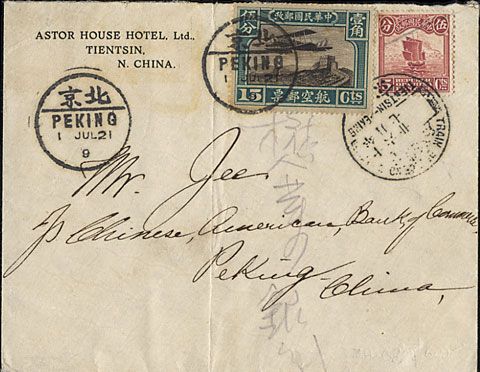 ASTOR HOUSE HOTEL, Ltd.,
TIENTSIN,
N. CHINA.
中華民國郵政
壹角
伍分
航空郵票
15 Cts
伍
分
5
北京
PEKING
1 JUL 21
北京
PEKING
1 JUL 21
9
TRAIN
TIENTSIN
Mr. Jee
Chinese, American, Bank of Commerce
Peking
China,